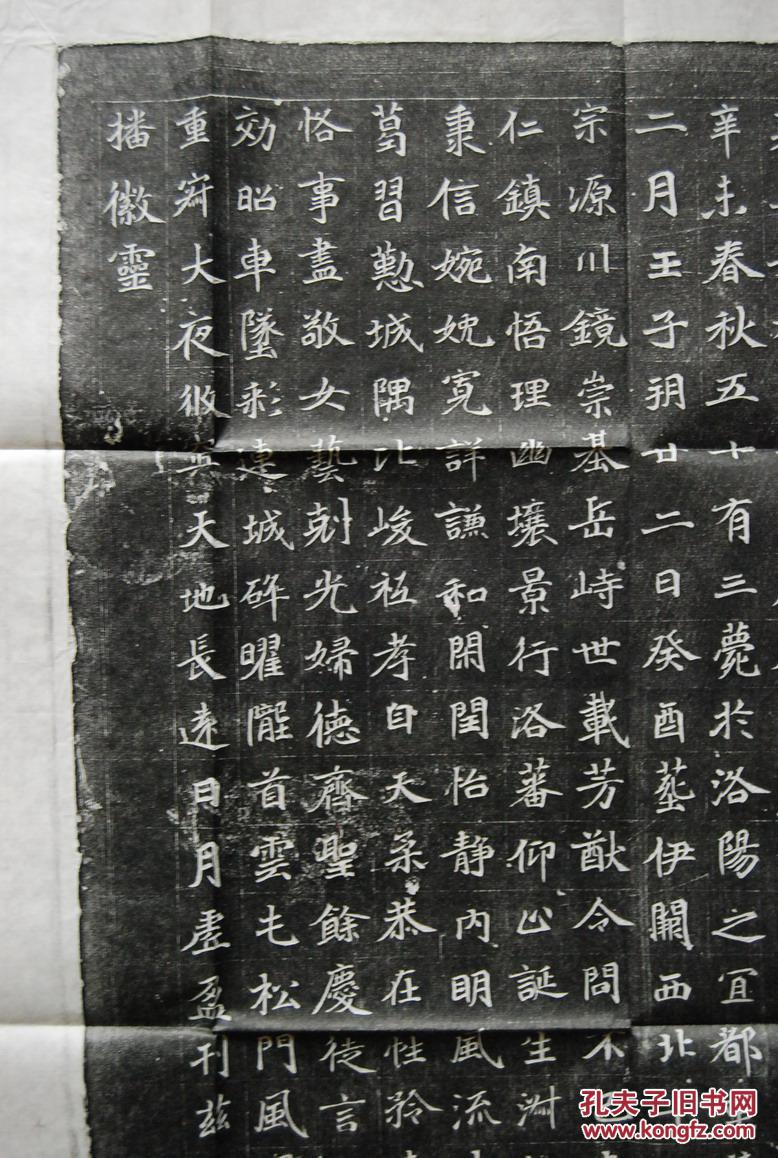 辛未春秋五十有三薨於洛陽之宜都
二月壬子朔廿二日癸酉葬伊闕西北
宗源川鏡崇基岳峙世載芳猷令問不已
仁鎮南悟理幽壤景行洛蕃仰止誕生淵
秉信婉娩寛詳謙和閑閨怡静内明風流
葛習懃城隅比峻祗孝自天柔恭在性矜
恪事盡敬女藝剋光婦德齊聖餘慶徒言
効昭車墜彩連城碎曜隴首雲七松門風
重窮大夜攸寘天地長遠日月虛盈刊兹
播徽靈
孔夫子旧书网
www.kongfz.com